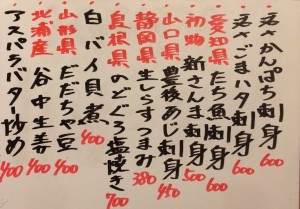 活さかんぱち刺身 600
活さごまハタ刺身 600
愛知県たち魚刺身 600
初物新さんま刺身 500
山口県豊後あじ刺身 450
静岡県生しらすつまみ 380
島根県のどぐろ塩焼き 700
白バイ貝煮 400
山形県だだちゃ豆 400
北浦産谷中生姜 400
アスパラバター炒め 400